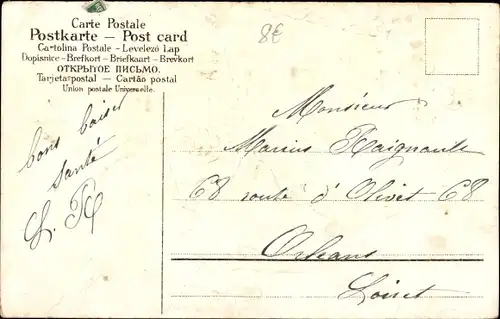 Carte Postale
Postkarte — Post card
Cartolina Postale - Levelező Lap
Dopisnice - Brefkort - Briefkaart - Brevkort
ОТКРЫТОЕ ПИСЬМО.
Tarjeta postal - Cartão postal
Union postale Universelle.
8€
bons baiser
Santé
L. R
Monsieur
Marius Raignault
68 route d'Olivet 68
Orléans
Loiret